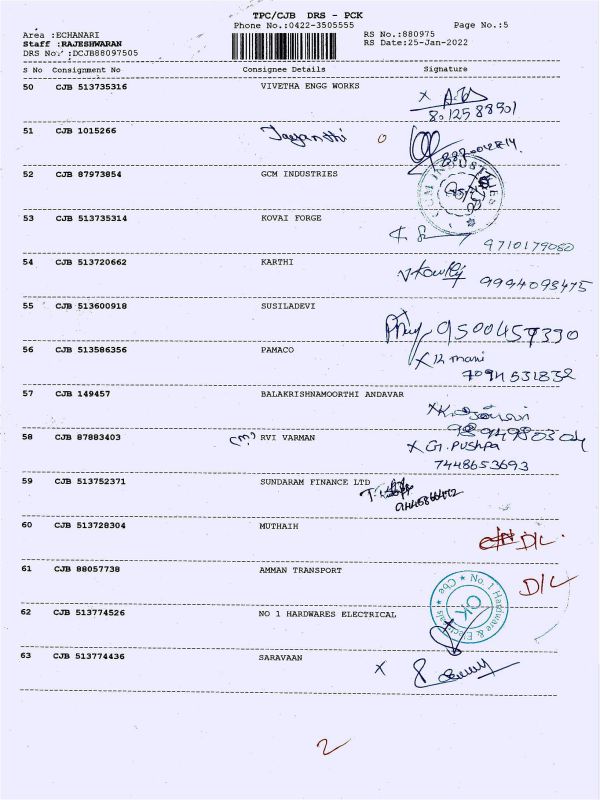 TPC/CJB DRS - PCK
Phone No.:0422-3505555
Page No.:5
Area :ECHANARI
RS No.:880975
Staff :RAJESHWARAN
RS Date:25-Jan-2022
DRS No. :DCJB88097505
S No Consignment No Consignee Details Signature
50 CJB 513735316 VIVETHA ENGG WORKS
X
8012588901
51 CJB 1015266 Jayanthi
52 CJB 87973854 GCM INDUSTRIES
GCM INDUSTRIES
53 CJB 513735314 KOVAI FORGE
9710179060
54 CJB 513720662 KARTHI
9994093475
55 CJB 513600918 SUSILADEVI
9500457390
56 CJB 513586356 PAMACO
X R mani
7094531832
57 CJB 149457 BALAKRISHNAMOORTHI ANDAVAR
58 CJB 87883403 RVI VARMAN
X G. Pushpa
7448653693
59 CJB 513752371 SUNDARAM FINANCE LTD
60 CJB 513728304 MUTHAIH
D/L
61 CJB 88057738 AMMAN TRANSPORT
D/L
62 CJB 513774526 NO 1 HARDWARES ELECTRICAL
No.1 Hardware & Electricals Cbe
OK
63 CJB 513774436 SARAVAAN
X
2